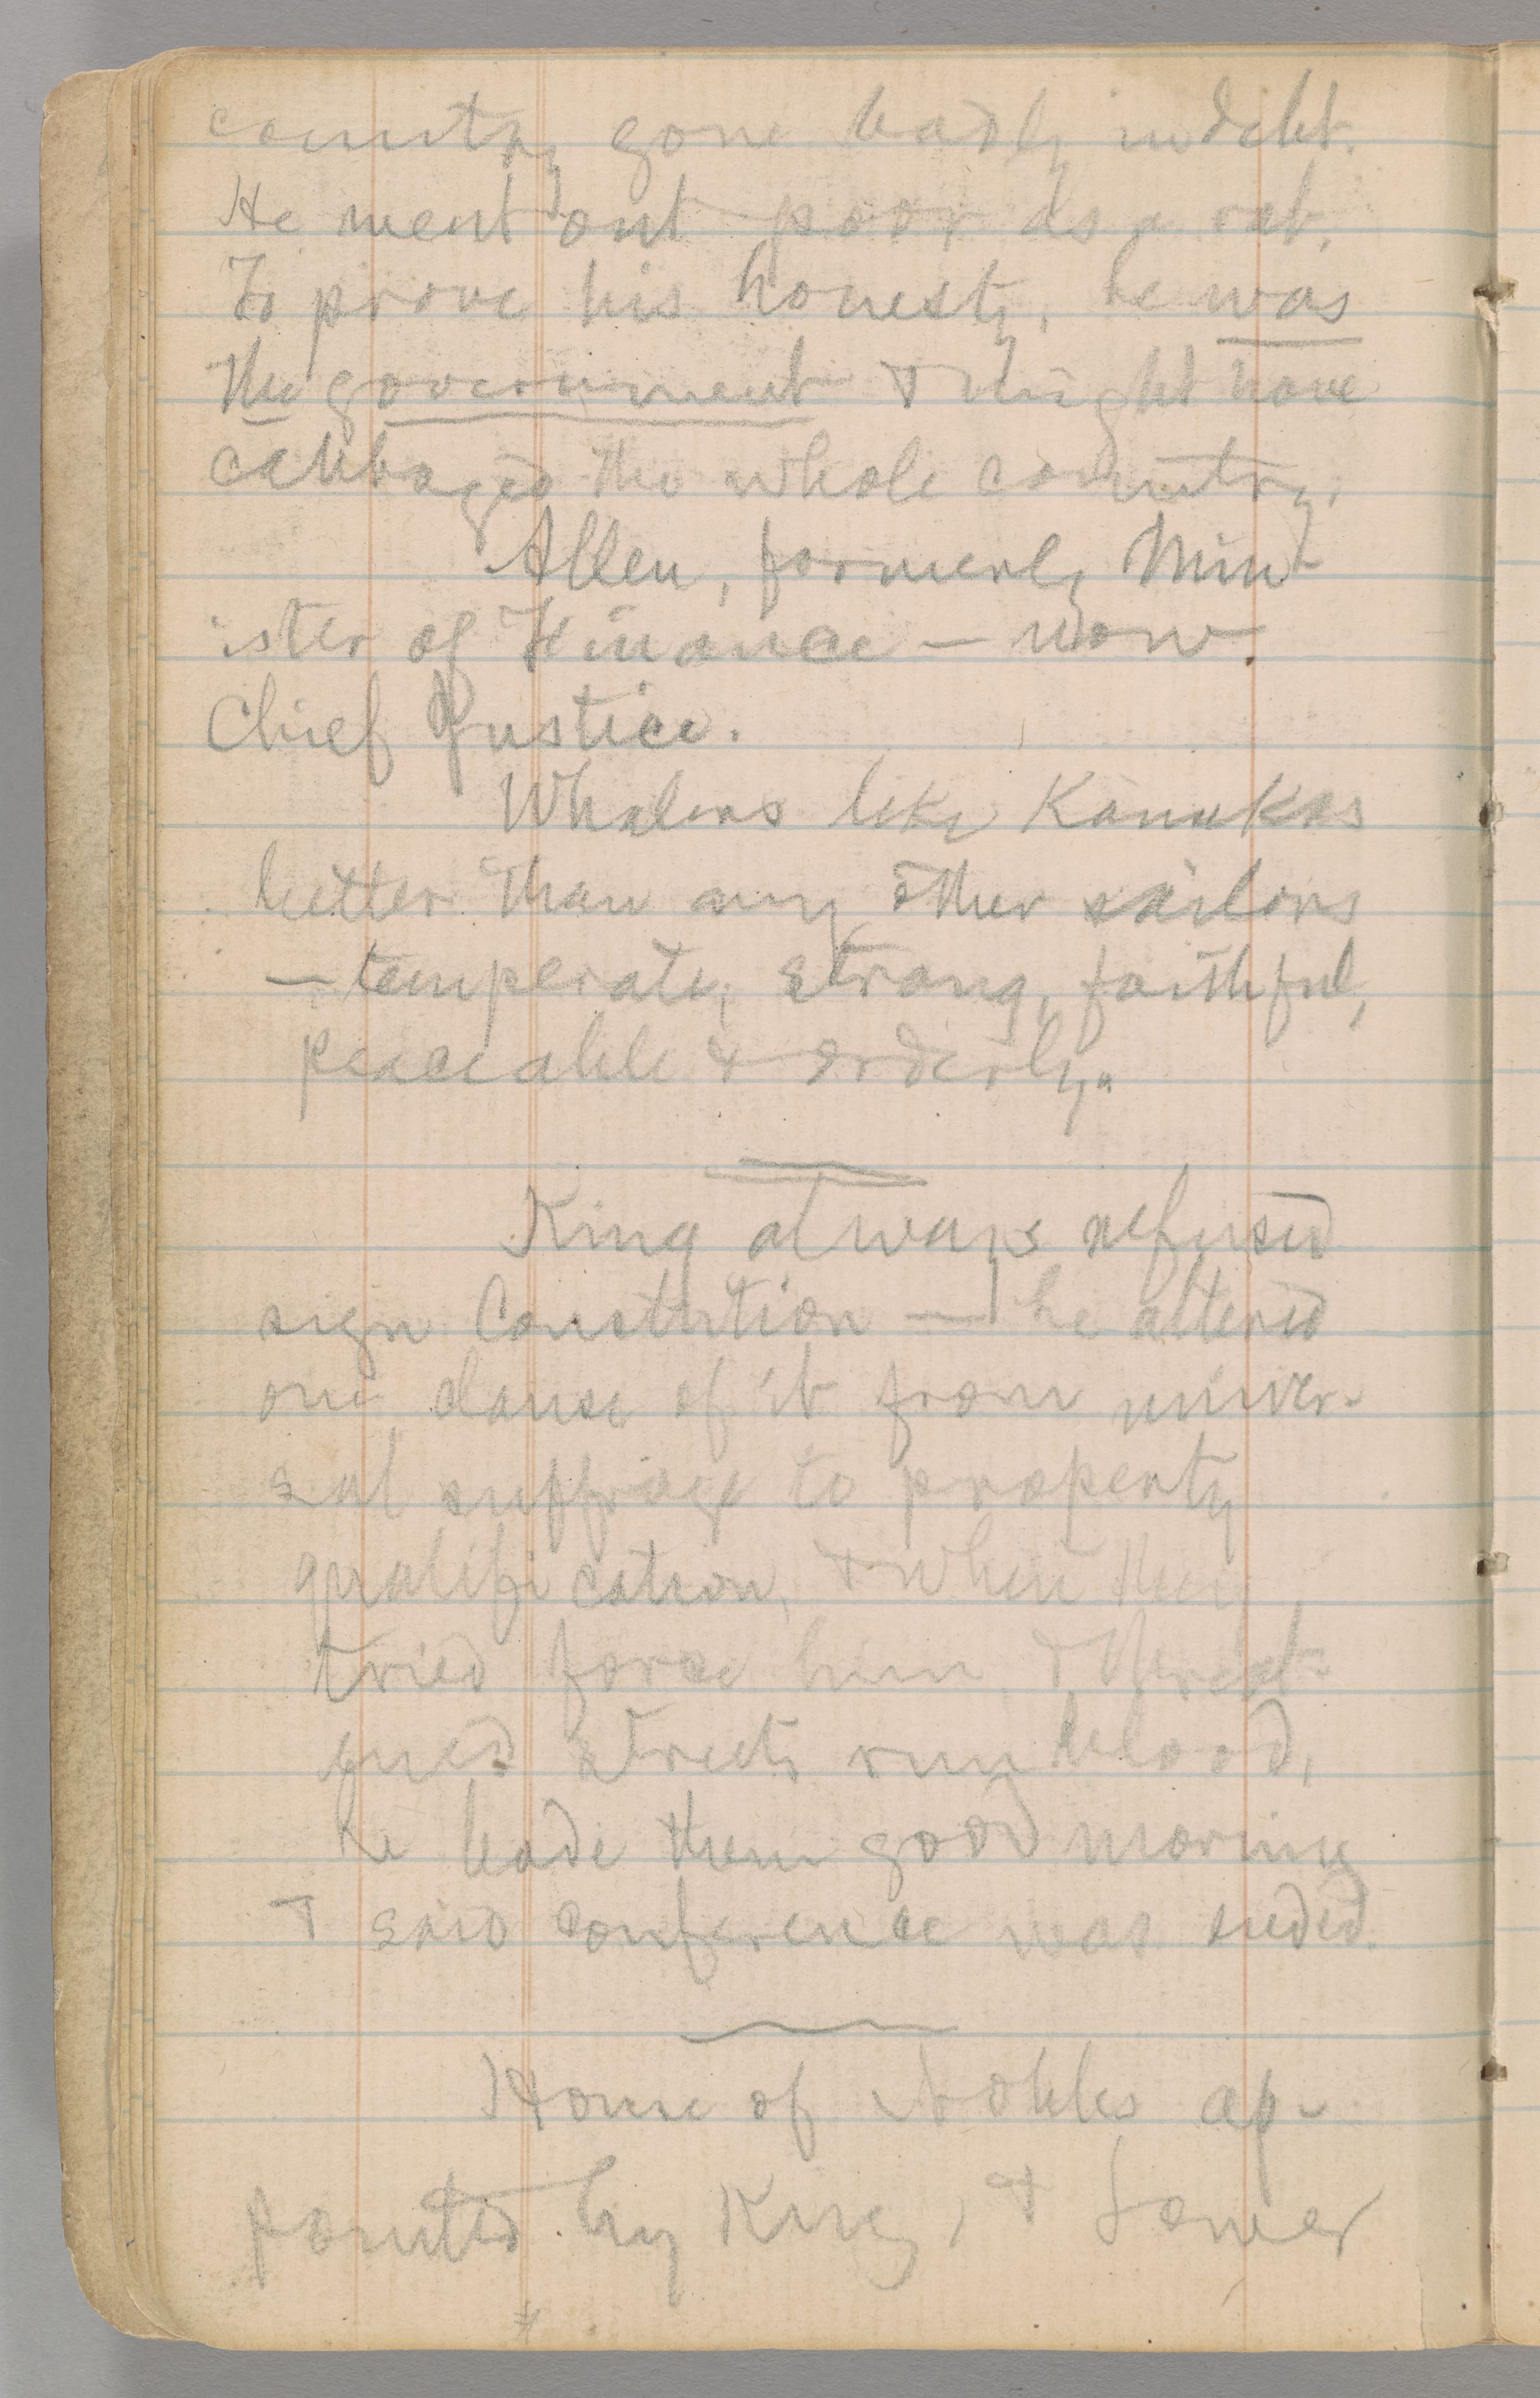 country gone badly in debt.
He went out poor as a rat.
To prove his honesty, he was
the government & might have
cabbaged the whole country.
Allen, formerly Min-
ister of Finance — now
Chief Justice.
Whalers like Kanakas
better than any other sailors
— temperate, strong, faithful,
peaceable & orderly.
King always refused
sign Constution — he altered
one clause of it from univer-
sal suffrage to property
qualification, & when they
tried force him & threat-
ened streets run blood,
he bade them good morning
& said conference was ended.
House of Nobles ap-
pointed by King, & Lower